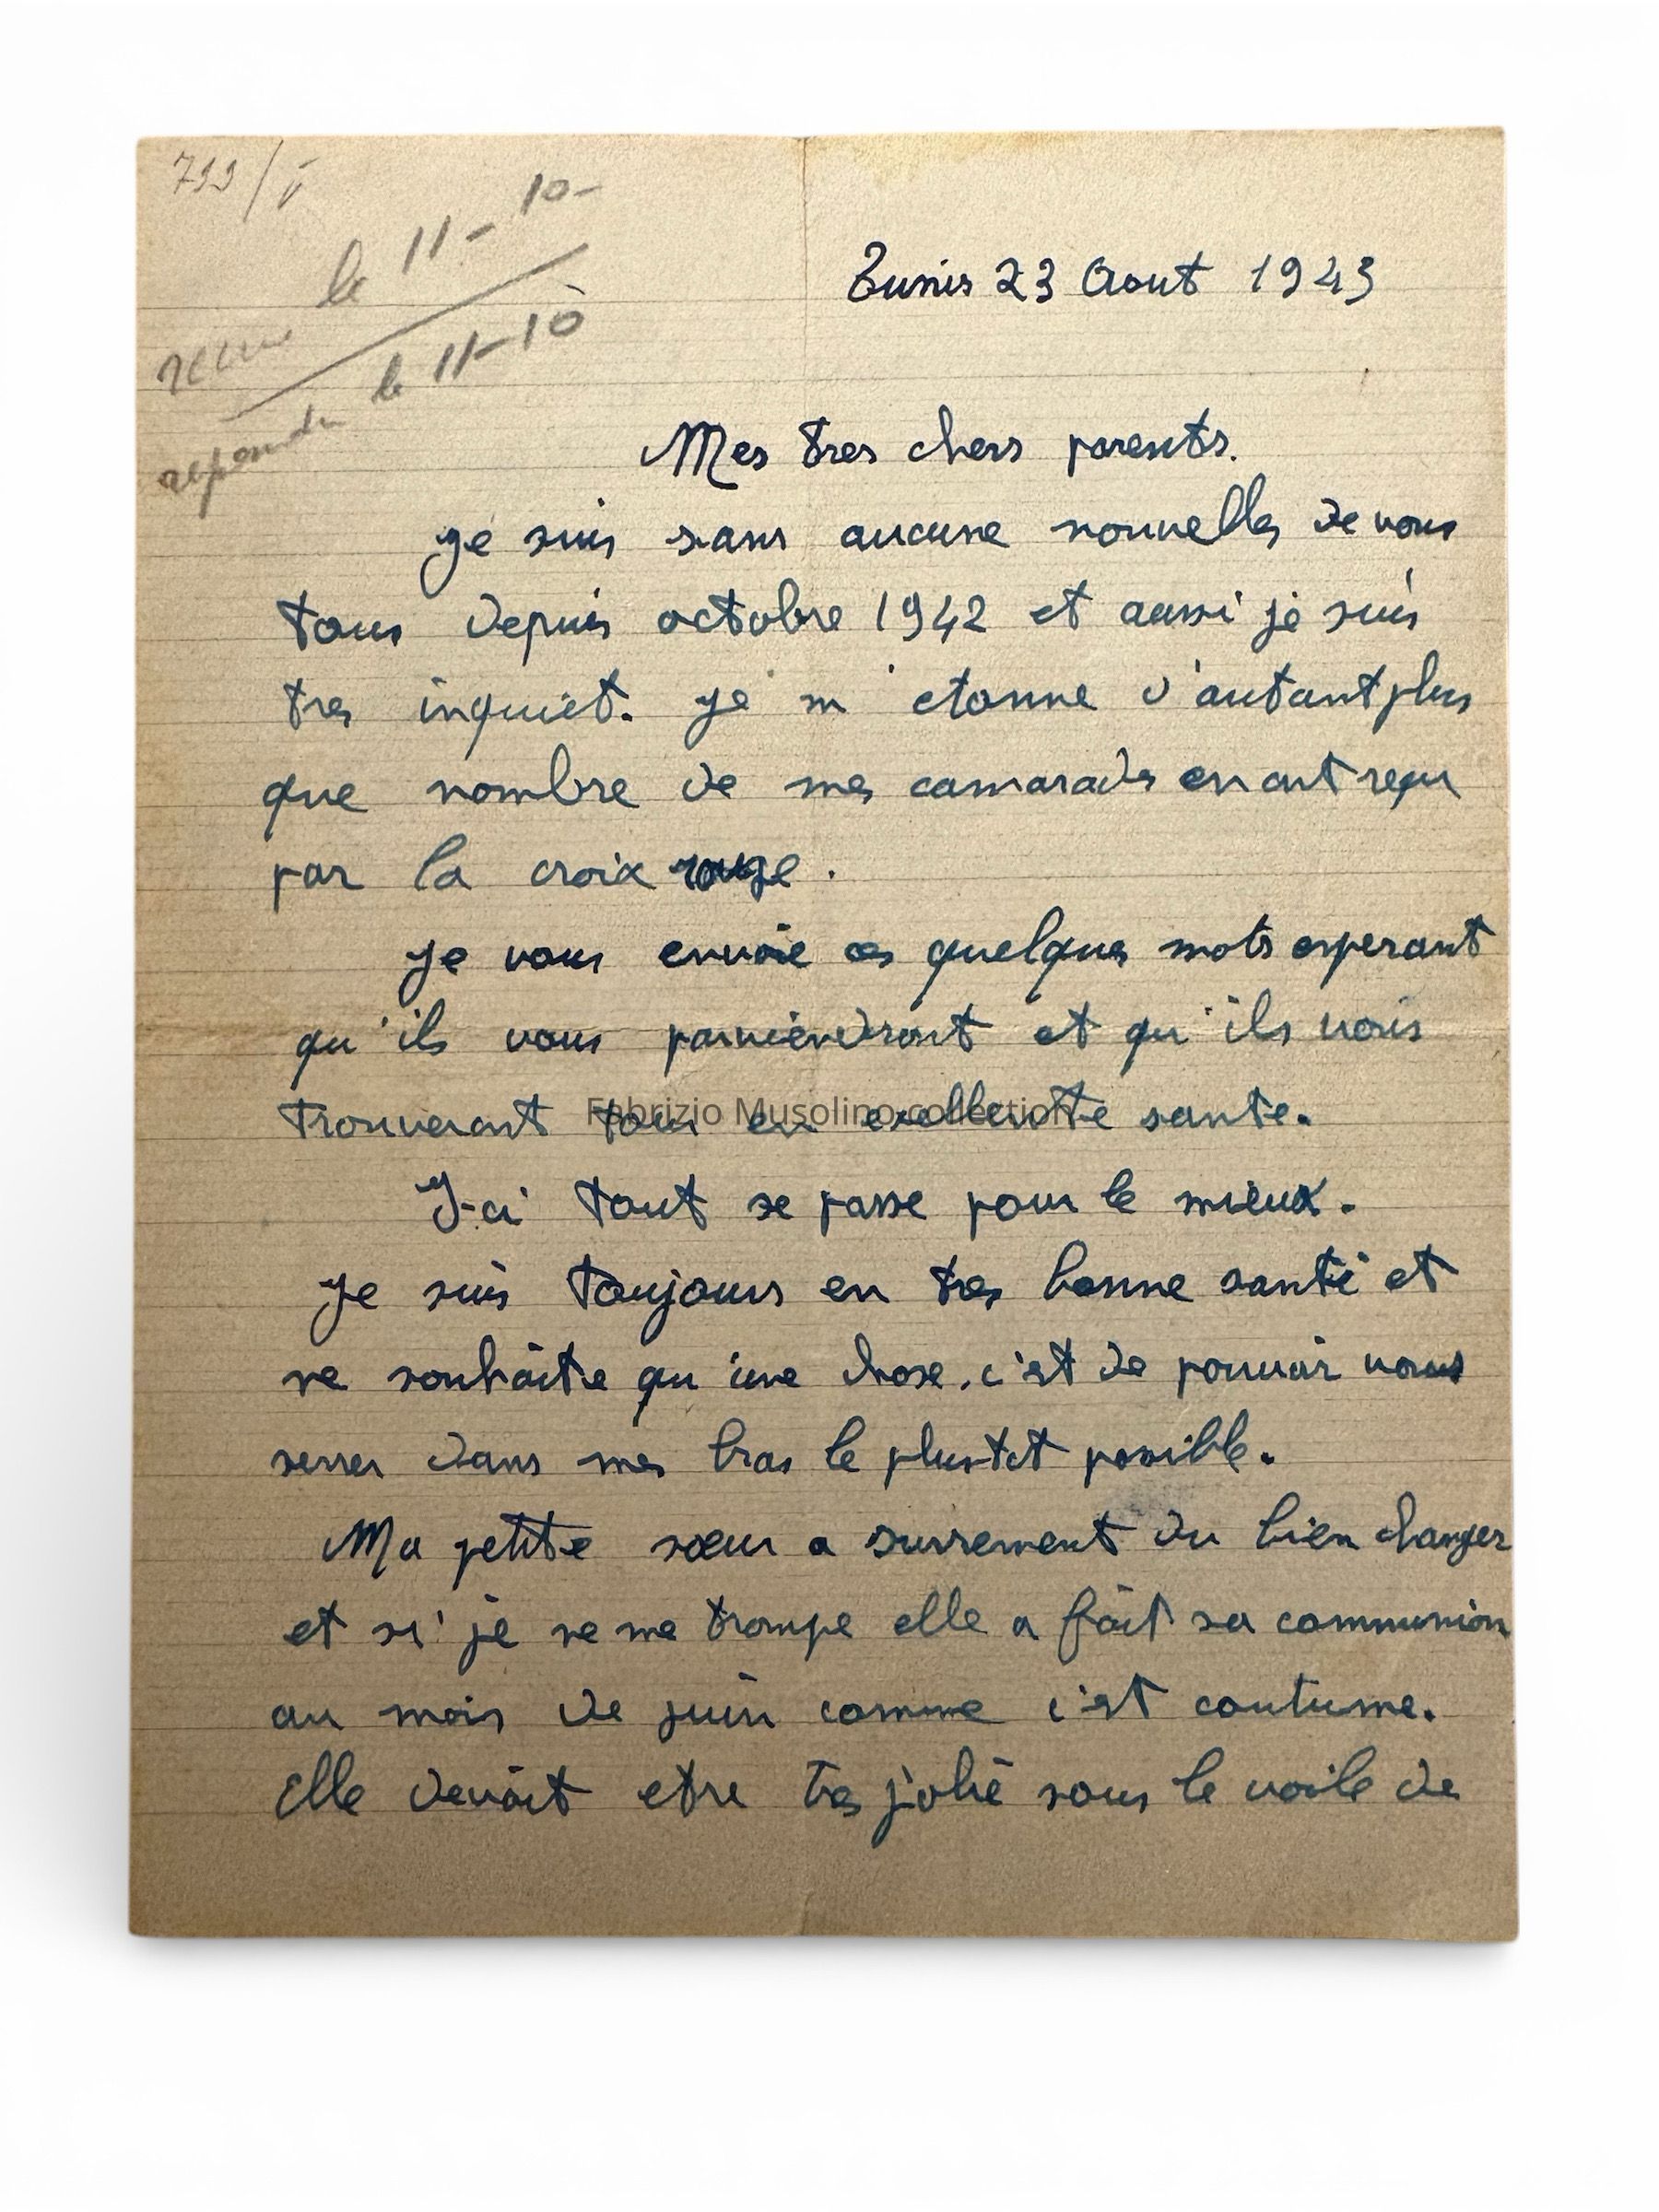 799/V
reçue le 11-10-
repondu le 11-10
Tunis 23 Aout 1943
Mes tres chers parents.
Je suis sans aucune nouvelles de vous
tous depuis octobre 1942 et aussi je suis
tres inquiet. Je m'etonne d'autant plus
que nombre de mes camarades en ont reçu
par la croix rouge.
Je vous envoie ces quelques mots esperant
qu'ils vous parviendront et qu'ils vous
trouveront tous en exellente sante.
Fabrizio Musolino collection
I-ci tout se passe pour le mieux.
Je suis toujours en tres bonne santé et
ne souhaite qu'une chose, c'est de pouvoir vous
serrer dans mes bras le plustot possible.
Ma petite sœur a surrement du bien changer
et si je ne me trompe elle a fait sa communion
au mois de juin comme c'est coutume.
Elle devait etre tres jolie sous le voile de